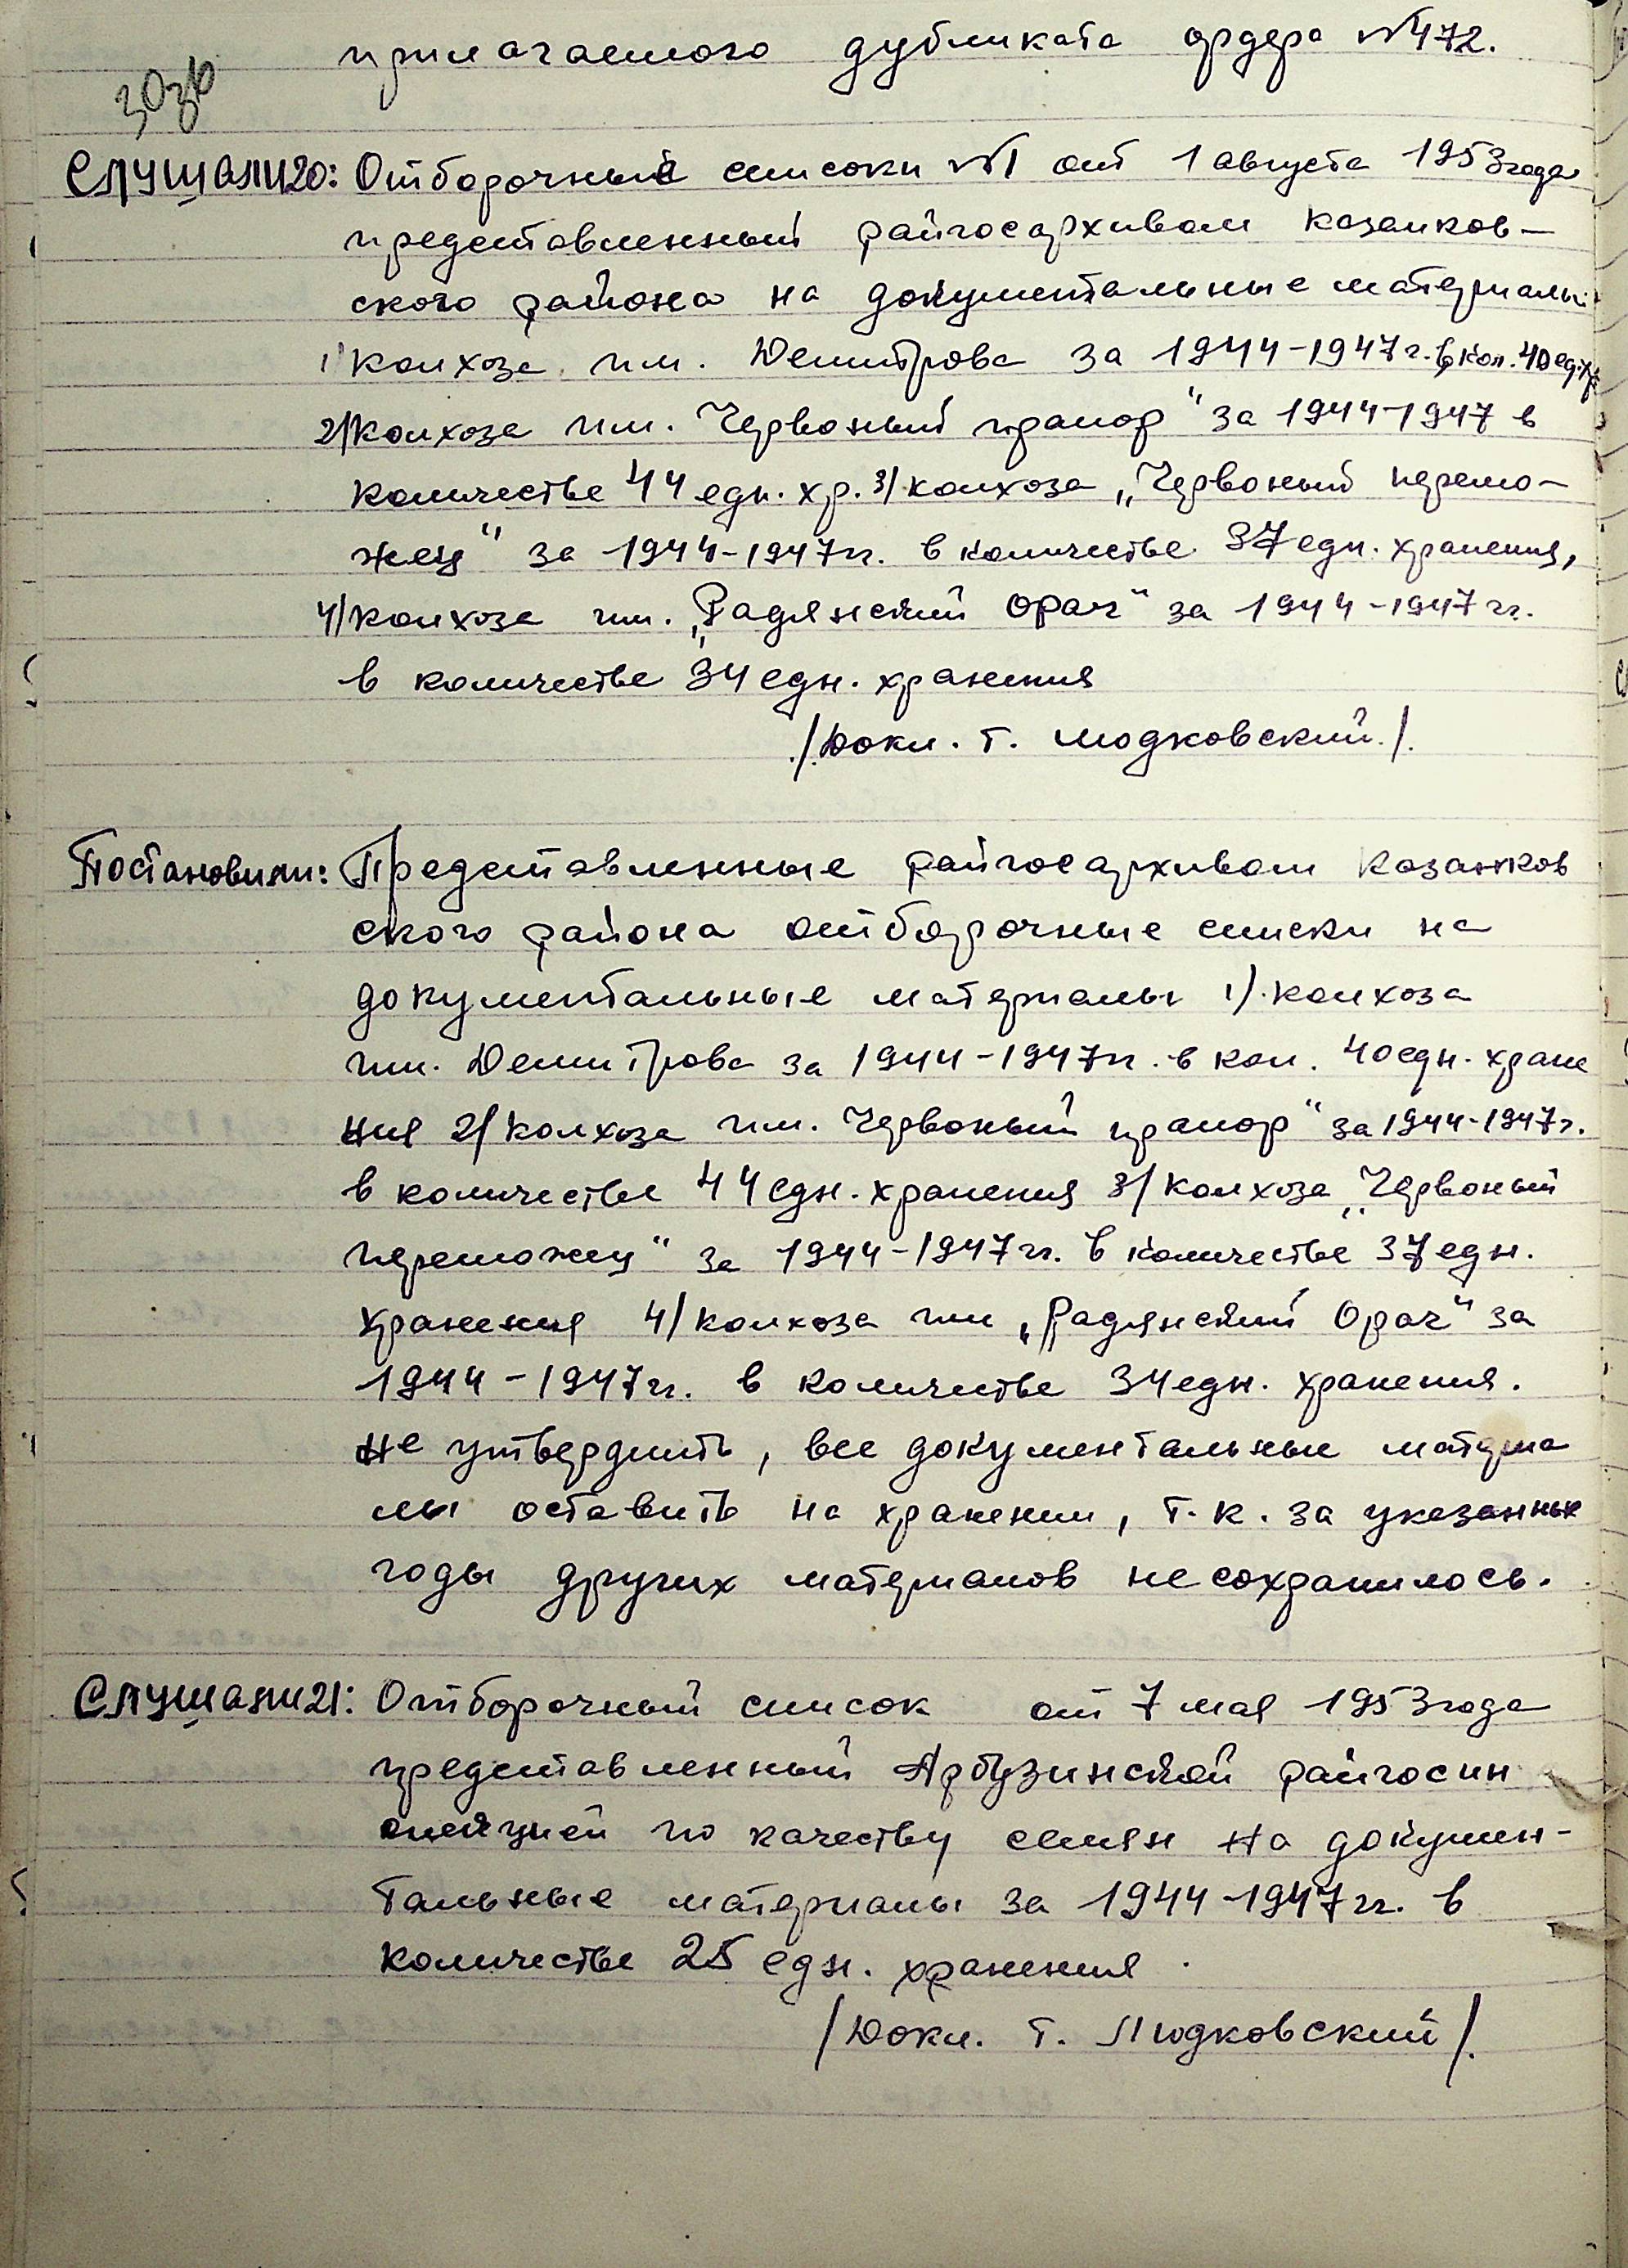 прилагаемого дубликата ордера №472.
30зв
Слушали 20: Отборочные списоки №1 от 1 августа 1953 года
представленный райгосархивом Казанков-
ского района на документальные материалы
1/ колхоза им. Демитрова за 1944-1947 г. в кол. 40 ед. хр.
2/ колхоза им. Червоный прапор" за 1944-1947 в
количестве 44 едн. хр. 3/ колхоза „Червоный перемо-
жец" за 1944-1947 гг. в количестве 37 едн. хранения,
4/ колхоза им. „Радянский Орач" за 1944-1947 гг.
в количестве 34 едн. хранения
/Докл. т. Людковский./.
Постановили: Представленные райгосархивом Казанков
ского района отборочные списки на
документальные материалы 1/. колхоза
им. Демитрова за 1944-1947 гг. в кол. 40 едн. хране
ния 2/ колхоза им. Червоный прапор" за 1944-1947 г.
в количестве 44 едн. хранения 3/ колхоза „Червоный
переможец" за 1944-1947 гг. в количестве 37 едн.
хранения 4/ колхоза им „Радянский Орач" за
1944-1947 гг. в количестве 34 едн. хранения.
не утвердить, все документальные материа
лы оставить на хранении, т.к. за указанные
годы других материалов не сохранилось.
Слушали 21: Отборочный список от 7 мая 1953 года
представленный Арбузинской райгосин
спекцией по качеству семян на докумен-
тальные материалы за 1944-1947 гг. в
количестве 25 едн. хранения.
/Докл. т. Людковский/.